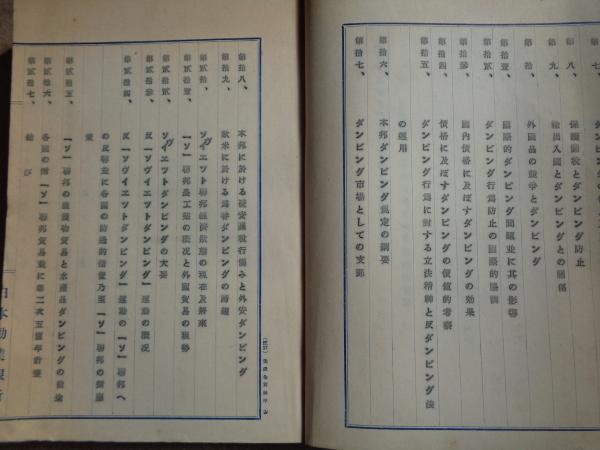 第八、保護關稅とダンピング防止
第九、輸出入國とダンピングとの關係
第拾、外國品の競爭とダンピング
第拾壹、國際的ダンピング問題並に其の影響
第拾貳、ダンピング行爲防止の國際的協調
第拾參、國內價格に及ぼすダンピングの效果
第拾四、價格に及ぼすダンピングの價値的考察
第拾五、ダンピング行爲に對する立法精神と反ダンピング法
の運用
第拾六、本邦ダンピング規定の綱要
第拾七、ダンピング市場としての支那
第拾八、本邦に於ける硫安議
第拾九、歐米に於ける
第貳拾、ソヴィエツト聯邦經濟
第貳拾壹、「ソ」聯邦農工業の概況と外國貿易の趨勢
第貳拾貳、ソヴィエツトダンピングの大要
第貳拾參、反「ソヴィエツトダンピング」運動の概況
第貳拾四、反「ソヴィエツトダンピング」運動の「ソ」聯邦へ
の反響並に各國の防遏的措置乃至「ソ」聯邦の對應
策
第貳拾五、「ソ」聯邦の農產物貿易と水產品ダンピングの
第貳拾六、各國の對「ソ」聯邦貿易並に第二次五箇年計畫
第貳拾七、結び
日本勸業銀行